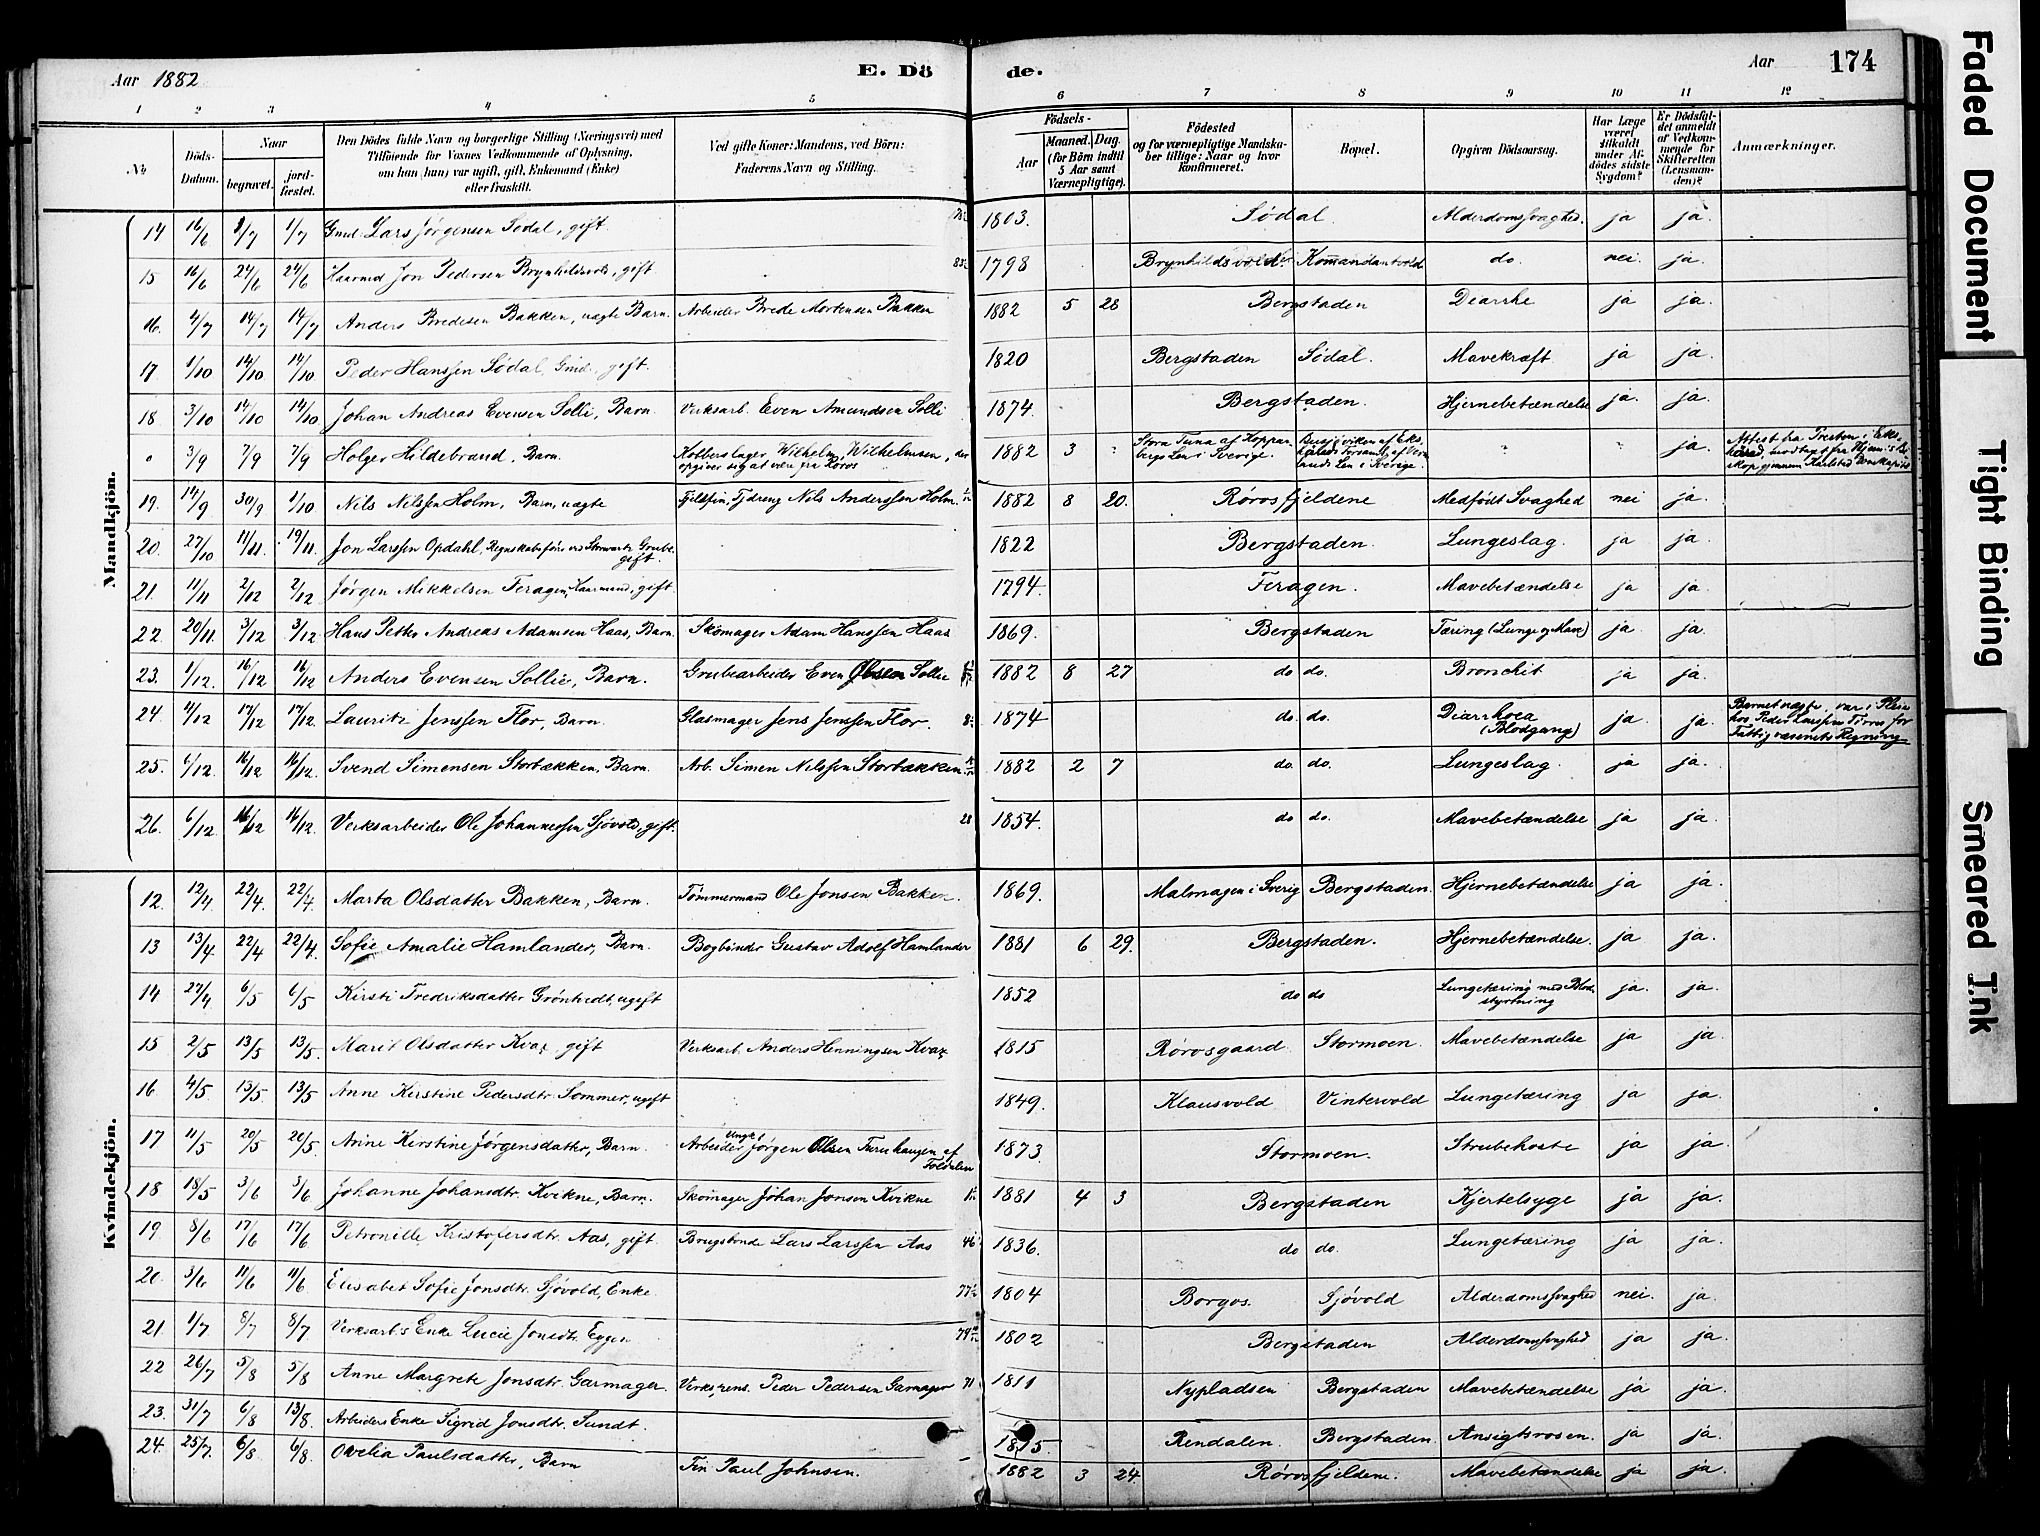 Aar 1882
E. Dö
de.
Aar
174
1 2 3 4 5 6 7 8 9 10 11 12
No
Döds-Datum.
Naar
begravet.
jordfæstet.
Den Dödes fulde Navn og borgerlige Stilling (Næringsvei) med
Tilföiende for Voxnes Vedkommende af Oplysning,
om han (hun) var ugift, gift, Enkemand (Enke)
eller fraskilt.
Ved gifte Koner: Mandens, ved Börn:
Faderens Navn og Stilling.
Födsels-
Aar
Maaned. Dag.
(for Börn indtil
5 Aar samt
Værnepligtige).
Födested
og for værnepligtige Mandskaber tillige: Naar og hvor
konfirmeret.
Bopæl.
Opgiven Dödsaarsag.
Har Læge været tilkaldt under Afdödes sidste Sygdom?
Er Dödsfaldet anmeldt af Vedkommende for Skifteretten (Lensmanden)?
Anmærkninger.
Mandkjön.
14 16/6 1/7 Gmd. Lars Jørgensen Sødal, gift. 1803. Sødal. Alderdomssvaghed. ja ja.
15 16/6 24/6 24/6 Haarmd Jon Pedersen Brynhildsvold, gift 1798 Brynhildsvold Kommandantvold do. nei. ja.
16. 4/7 14/7 14/7 Anders Bredesen Bakken, uægte Barn. Arbeider Brede Mortensen Bakken 1882 5 28 Bergstaden Diarrhe ja ja.
17. 1/10 14/10 14/10 Peder Hanssen Sødal, Gmd., gift. 1820 Bergstaden Sødal. Mavekræft ja ja.
18 3/10 14/10 14/10 Johan Andreas Evensen Solli, Barn. Verksarb. Even Amundsen Solli 1874 Bergstaden. Hjernebetændelse ja. ja.
" 3/9 7/9 7/9 Holger Hildebrand, Barn. Wilhelm Wilhelmsen, der
opgiver sig at være fra Röros 1882 3 " Stora Tuna af Kopparbergs Len i Sverige. " " ja. Attest fra Presten i
19. 14/9 30/9 1/10 Nils Nilssen Holm, Barn, uægte Nils Anderssen Holm. 1882 8 20. Rørosfjeldene Medfödt Svaghed nei ja.
20. 27/10 11/11. 19/11. Jon Larssen Opdahl, Regnskabsfører ved Storvarts Grube.
gift. 1822 Bergstaden. Lungeslag. ja ja.
21. 11/11 2/12 2/12 Jørgen Mikkelsen Feragen, Haarmand, gift. 1794. Feragen. Mavebetændelse ja ja.
22. 20/11. 3/12 3/12. Hans Petter Andreas Adamsen Haas, Barn. Skomager Adam Hanssen Haas 1869. Bergstaden Tæring (Lunge og Mave) ja. ja.
23. 1/12. 16/12 16/12 Anders Evensen Sollie, Barn. Grubearbeider Even Olsen Sollie 1882 8 27 do do. Bronchit ja ja.
24. 4/12 17/12 17/12. Lauritz Jenssen Flor, Barn. Glasmager Jens Jenssen Flor. 8 1874 do. do. Diarrhoea
(Blodgang) ja. ja.
Fattigvæsenets Regning
25. 6/12. 16/12 16/12. Svend Simensen Storbækken, Barn. Arb. Simen Nilssen Storbækken. 1882 2 7 do. do. Lungeslag. ja ja.
26. 6/12. 16/12 16/12. Verksarbeider Ole Johannessen Sjövold, gift. 28 1854. do do. Mavebetændelse ja ja.
Kvindekjön.
12. 12/4 22/4. 22/4. Marta Olsdatter Bakken, Barn. Tömmermand Ole Jonsen Bakken. 1869. Malmagen i Sverig Bergstaden. Hjernebetændelse ja ja.
13 13/4 22/4 22/4. Sofie Amalie Hamlander, Barn. Bogbinder Gustav Adolf Hamlander 1881 6 29. Bergstaden. Hjernebetændelse. ja ja.
14 27/4 6/5 6/5 Kirsti Fredriksdatter Gröntvedt, ugift 1852 do do Lungetæring med Blodstyrtning ja. ja.
15 2/5 13/5 13/5. Marit Olsdatter Kvar, gift Verksarb. Anders Henningsen Kvar 1815 Rørosgaard. Stormoen. Mavebetændelse ja ja
16 4/5. 13/5 13/5 Anne Kirstine Pedersdtr. Sommer, ugift 1849. Klausvold Vintervold Lungetæring ja ja.
17 11/5 20/5 20/5. Anne Kirstine Jörgensdatter, Barn. Arbeider Ungk. Jörgen Olsen af
Foldalen 1873. Stormoen. Strubehoste ja ja.
18 18/5 3/6 3/6 Johanne Johansdtr. Kvikne, Barn. Skomager Johan Jonsen Kvikne 1881 4 3 Bergstaden Kjertelsyge ja ja.
19 8/6 17/6 17/6 Petronille Kristofersdtr. Aas, gift. Brugsbonde Lars Larssen Aas 46 1836. do do. Lungetæring ja ja.
20. 3/6 11/6 11/6. Elisabet Sofie Jonsdtr. Sjövold, Enke. 1804 Borgos. Sjövold Alderdomssvaghed nei. ja.
21. 1/7 8/7 8/7 Verksarb.s Enke Lucie Jonsdtr. Eggen 1802 Bergstaden Alderdomssvaghed ja ja
22 26/7 5/8 5/8 Anne Margrete Jonsdtr. Garmager. Verkspens. Peder Pedersen Garmager 71 1811 Nypladsen Bergstaden Mavebetændelse ja ja.
23. 31/7 6/8 13/8. Arbeiders Enke Sigrid Jonsdtr. Sundt. 1815 Rendalen. Bergstaden. Ansigtsrosen. ja ja.
24. 25/7 6/8 6/8. Ovelia Paulsdatter, Barn Fin Paul Johnsen. 1882 3 24. Rørosfjeldene. Mavebetændelse ja ja.
Faded Document
Tight Binding
Smeared Ink